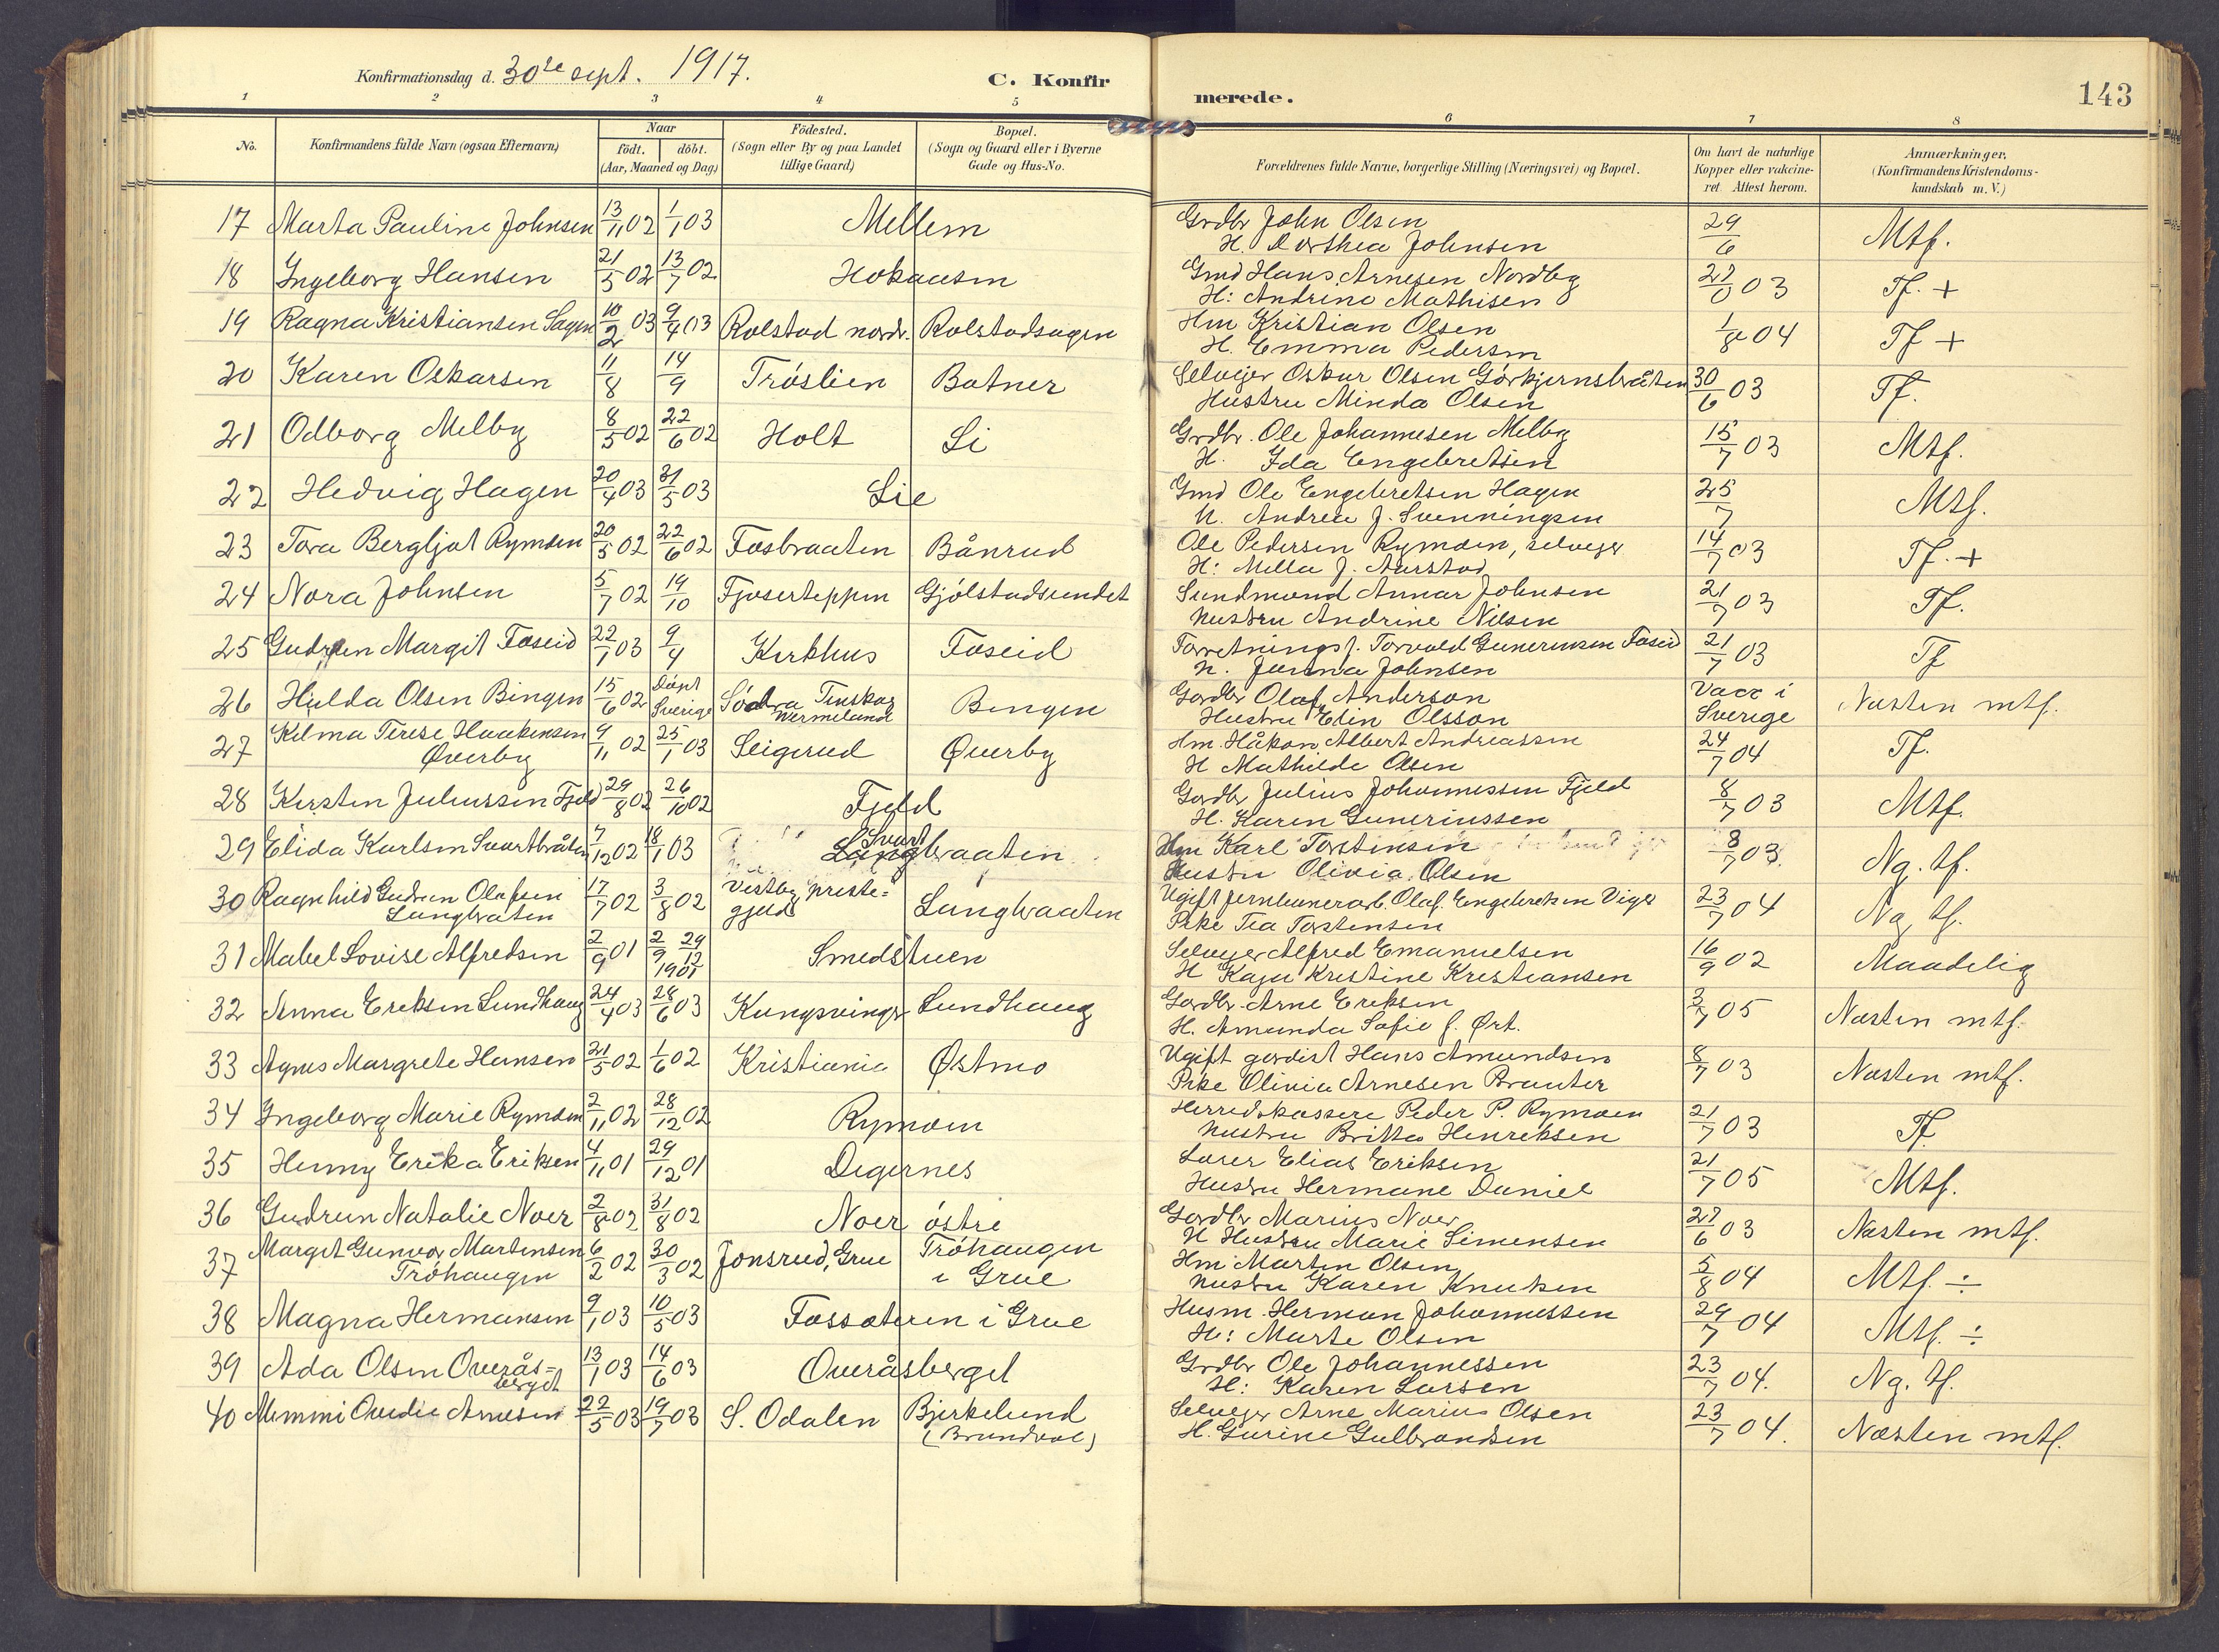 Konfirmationsdag d. 30te sept. 1917.
C. Konfirmerede.
143
1 2 3 4 5 6 7 8
No.
Konfirmandens fulde Navn (ogsaa Efternavn)
Naar
födt. döbt.
(Aar, Maaned og Dag)
Födested.
(Sogn eller By og paa Landet
tillige Gaard)
Bopæl.
(Sogn og Gaard eller i Byerne
Gade og Hus-No.
Forældrenes fulde Navne, borgerlige Stilling (Næringsvei) og Bopæl.
Om havt de naturlige
Kopper eller vakcine-
ret. Attest herom.
Anmærkninger,
(Konfirmandens Kristendoms-
kundskab m. V.)
17 Marta Pauline Johnsen 13/11 02 1/1 03 Mellem Grdbr John Olsen 29/6 Mtf.
H. Dorthea Johnsen
18 Ingeborg Hansen 21/5 02 13/7 02 Hokaasen Gmd Hans Arnesen Nordby 03 Tf. +
H: Andrine Mathisen
19 Ragna Kristiansen Sagen 10/2 03 9/4 03 Rolstad nordr. Rolstadsagen Hm Kristian Olsen 1/8 04 Tf +
H. Emma Pedersen
20 Karen Oskarsen 11/8 14/9 Tröslien Botner Selvejer Oskar Olsen Görkjernsbråten 30/6 03 Tf.
Hustru Minda Olsen
21 Odborg Melby 8/5 02 22/6 02 Holt Li Grdbr. Ole Johannesen Melby 15/7 03 Mtf.
H. Ida Engebretsen
22 Hedvig Hagen 20/4 03 31/5 03 Lie Gmd Ole Engebretsen Hagen 25/7 Mtf.
H. Andrea J. Svenningsen
23 Tora Bergljot Rymoen 20/5 02 22/6 02 Fosbraaten Bånrud Ole Pedersen Rymoen, selveger 14/7 03 Tf. +
H: Mella J. Aarstad
24 Nora Johnsen 5/7 02 19/10 Fjoserteppen Gjölstadsundet Sundmand Annar Johnsen 21/7 03 Tf.
Hustru Andrine Nilsen
25 Gudrun Margit Foseid 22/1 03 9/4 Kirkhus Foseid Forretningsf. Torvald Guneriusen Foseid 21/7 03 Tf
H. Johnsen
26 Hulda Olsen Bingen 15/6 02 Döpt Sverige Södra Finskog Wermeland Bingen Gordbr Olof Anderson Vacc i Sverige Næsten mtf.
Hustru Edin Olsson
27 Kilma Terese Haakensen Øverby 9/11 02 25/1 03 Seigerud Øverby Hm. Håkon Albert Andreassen 24/7 04 Tf.
H Mathilde Olsen
28 Kirsten Juliussen Fjeld 29/8 02 26/10 02 Fjeld Gordbr Julius Johannessen Fjeld 8/7 03 Mtf.
H. Karen Guneriussen
29 Elida Karlsen Svartbråten 7/12 02 18/1 03 Svartbraaten Hm Karl Torstensen 8/7 03. Ng. tf.
Hustru Olivia Olsen
30 Ragnhild Gudrun Olafsen Langbraten 17/7 02 3/8 02 Vestby preste=gjeld Langbraaten Ugift jernbanearb. Olaf Engebretsen Viger 23/7 04 Ng tf.
Pike Tea Torstensen
31 Mabel Lovise Alfredsen 2/9 01 2/9 29/12 1901 Smedstuen Selveyer Alfred Emanuelsen 16/9 02 Maadelig
H Kaja Kristine Kristiansen
32 Anna Eriksen Lundhaug 24/4 03 28/6 03 Kongsvinger Lundhaug Gordbr. Arne Eriksen 3/7 05 Næsten mtf.
H. Amanda Sofie f. Ørt.
33 Agnes Margrete Hansen 21/5 02 1/6 02 Kristiania Østmo Ugift gordist Hans Amundsen 8/7 03 Næsten mtf.
Pike Olivia Arnesen Branter
34 Ingeborg Marie Rymoen 2/11 02 28/12 02 Rymoen Herredskasserer Peder P. Rymoen 21/7 03 Tf.
Hustru Britta Henriksen
35 Henny Erika Eriksen 4/11 01 29/12 01 Digernes Lærer Elias Eriksen 21/7 05 Mtf.
Hustru Hermane Daniel
36 Gudrun Natalie Noer 2/8 02 31/8 02 Noer östre Gordbr Marius Noer 27/6 03 Næsten mtf.
H Hustru Marie Simensen
37 Margit Gunvor Martinsen Tröhaugen 6/2 02 30/3 02 Jonsrud, Grue Tröhaugen i Grue Hm Martin Olsen 5/8 04 Mtf. ÷
Hustru Karen Knutsen
38 Magna Hermansen 9/1 03 10/5 03 Fossæteren i Grue Husm. Herman Johannessen 29/7 04 Mtf. ÷
H: Marte Olsen
39 Ada Olsen Overås=berget 13/1 03 14/6 03 Overåsberget Grdbr Ole Johannessen 23/7 04. Ng. tf.
H: Karen Larsen
40 Mimmi Ovedie Arnesen 22/5 03 19/7 03 S. Odalen Bjerkelund (Brandval) Selveger Arne Marius Olsen 23/7 04. Næsten mtf.
H. Gurine Gulbrandsen